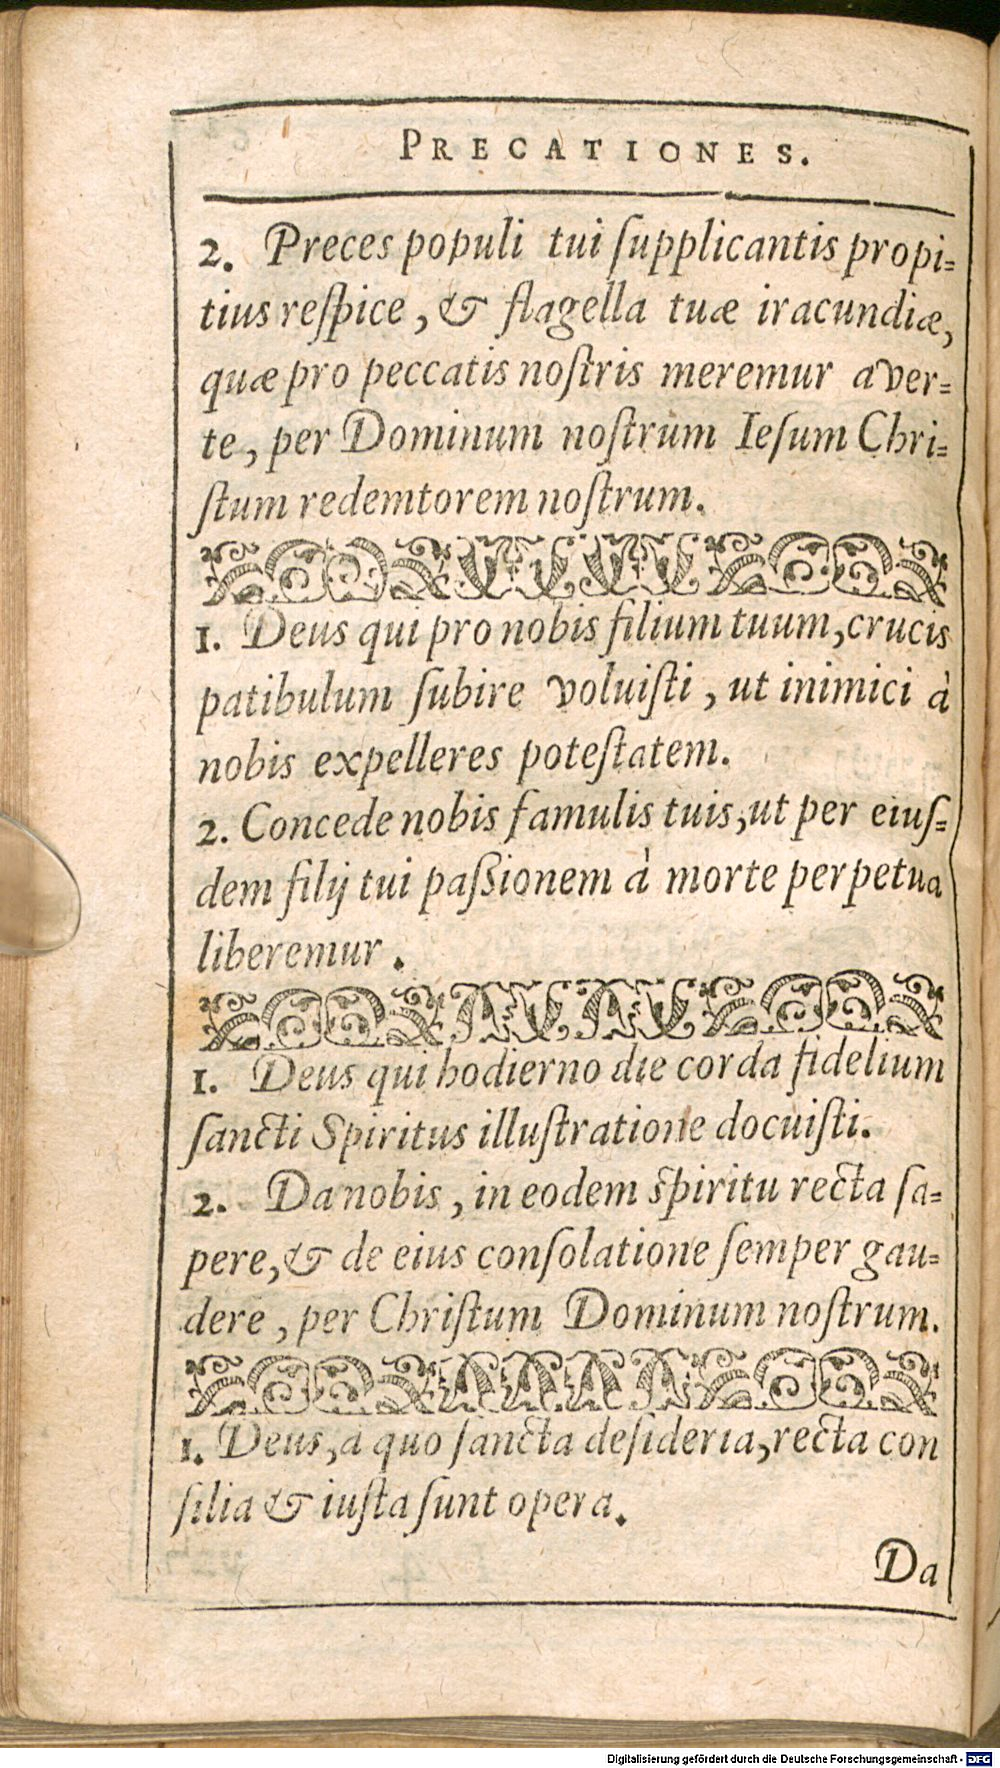 PRECATIONES.
2. Preces populi tui ſupplicantis propi=
tius reſpice, & flagella tuæ iracundiæ,
quæ pro peccatis noſtris meremur aver=
te, per Dominum noſtrum Ieſum Chri=
ſtum redemtorem noſtrum.
1. Deus qui pro nobis filium tuum, crucis
patibulum ſubire voluiſti, ut inimici à
nobis expelleres poteſtatem.
2. Concede nobis famulis tuis, ut per eiuſ=
dem filij tui paſßionem à morte perpetua
liberemur.
1. Deus qui hodierno die corda fidelium
ſancti Spiritus illuſtratione docuiſti.
2. Da nobis, in eodem ſpiritu recta ſa=
pere, & de eius conſolatione ſemper gau=
dere, per Chriſtum Dominum noſtrum.
1. Deus, à quo ſancta deſideria, recta con
ſilia & iuſta ſunt opera.
Da
Digitalisierung gefördert durch die Deutsche Forschungsgemeinschaft - DFG